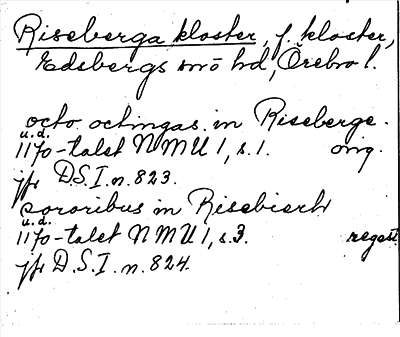 Riseberga kloster, f. kloster,
Edsbergs sn o hd, Örebro l.
octo octingas in Riseberge.
u.d.
1170-talet NMU 1, s. 1. orig.
jfr D.S. I. n. 823.
sororibus in Risebierh
u.d.
1170-talet NMU 1, s. 3. regest
jfr D.S. I. n. 824.